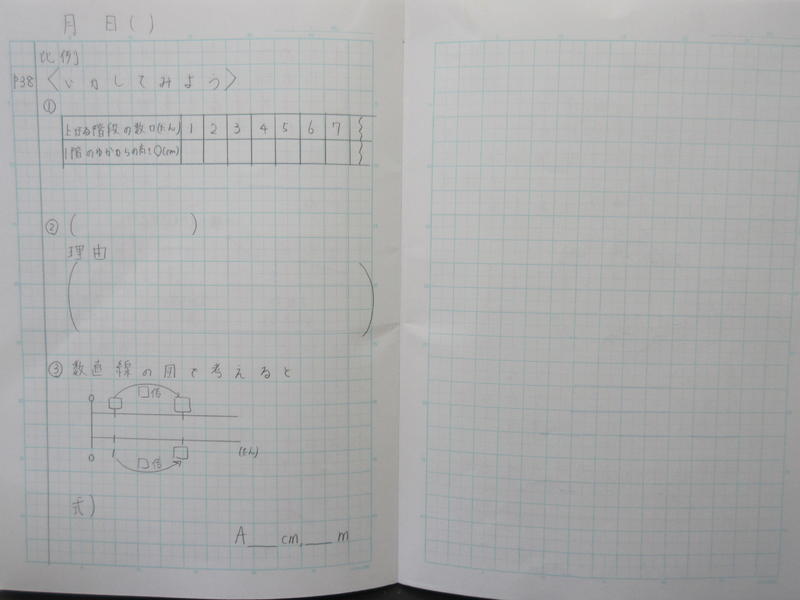 月 日( )
比例
P38 〈いかしてみよう〉
①
上がる階段の数□(だん) 1 2 3 4 5 6 7
1階のゆかからの高さ○(cm)
② ( )
理由
③ 数直線の図で考えると
□倍
0 □ □
0 1 □ (だん)
□倍
式)
A ___ cm, ___ m